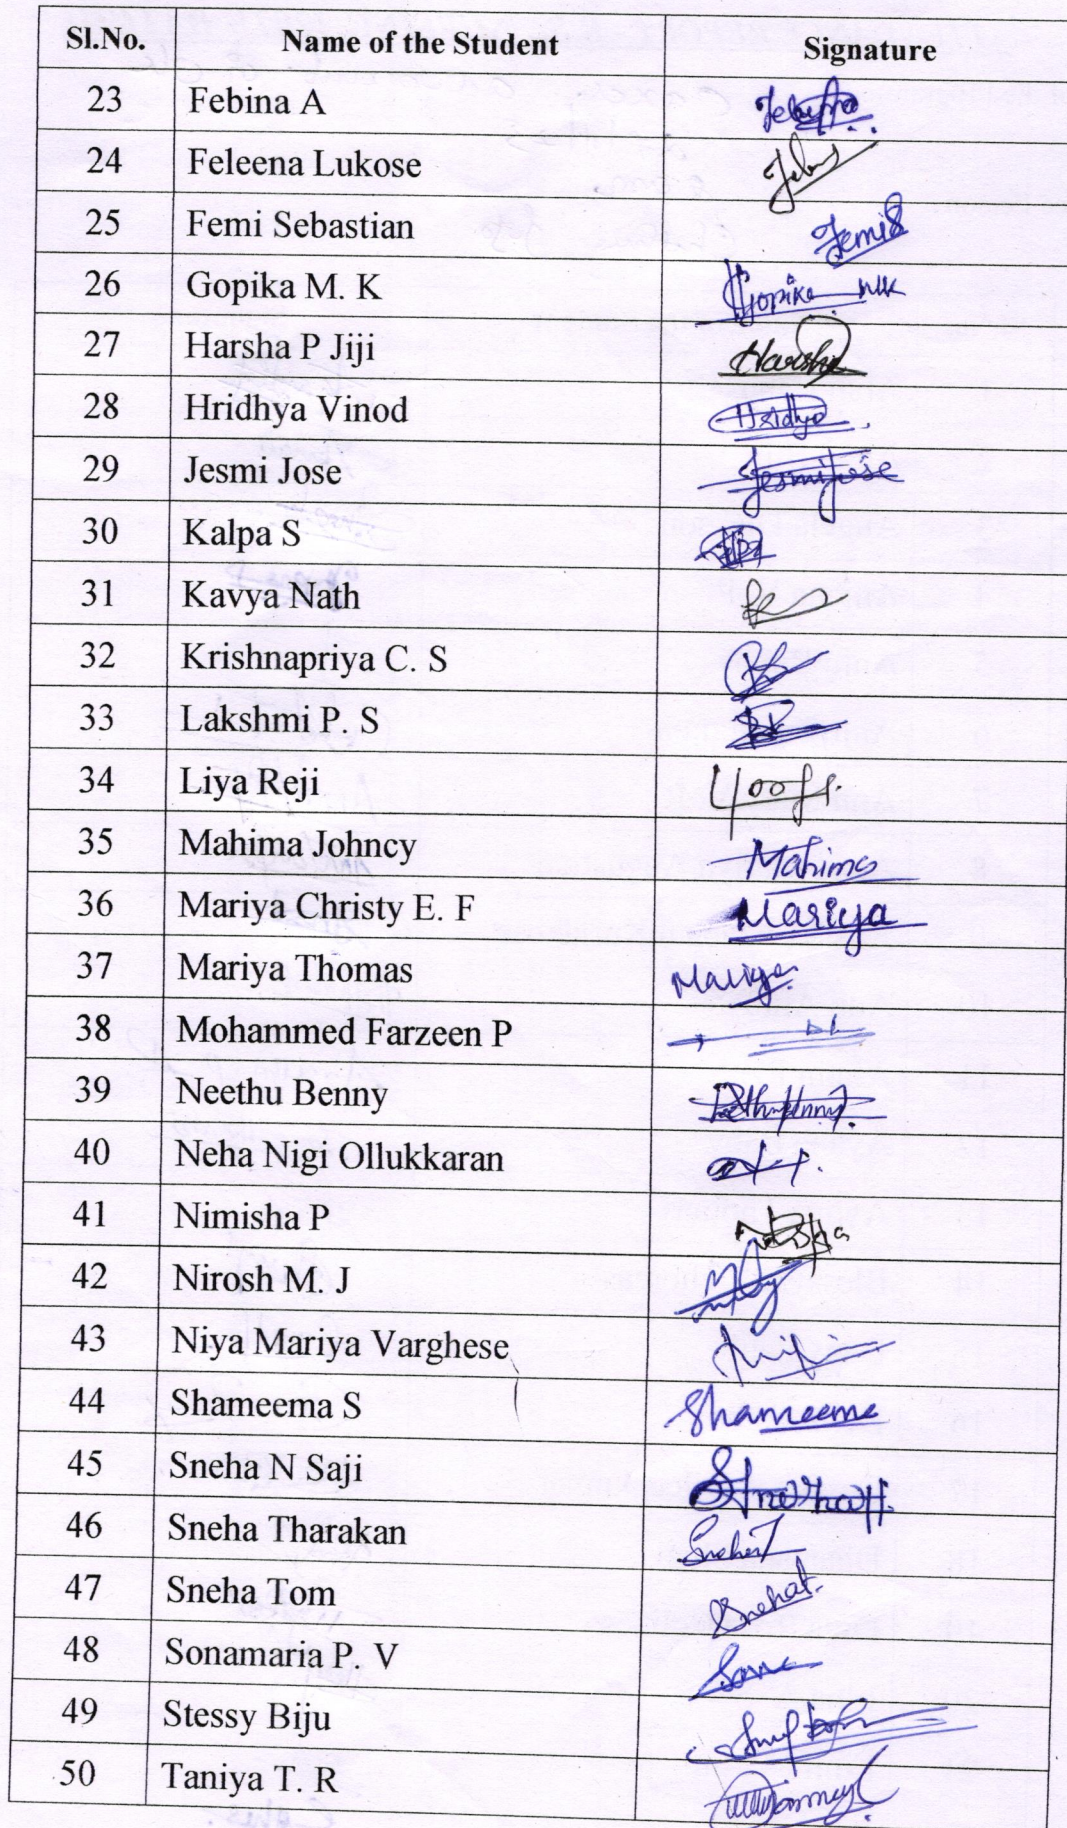 Sl.No. Name of the Student Signature
23 Febina A Febina
24 Feleena Lukose
25 Femi Sebastian Femi S
26 Gopika M. K Gopika MK
27 Harsha P Jiji Harsha
28 Hridhya Vinod Hridhya
29 Jesmi Jose Jesmi Jose
30 Kalpa S
31 Kavya Nath
32 Krishnapriya C. S
33 Lakshmi P. S
34 Liya Reji
35 Mahima Johncy Mahima
36 Mariya Christy E. F Mariya
37 Mariya Thomas Mariya
38 Mohammed Farzeen P
39 Neethu Benny
40 Neha Nigi Ollukkaran
41 Nimisha P
42 Nirosh M. J
43 Niya Mariya Varghese
44 Shameema S Shameema
45 Sneha N Saji
46 Sneha Tharakan SnehaT
47 Sneha Tom Snehat.
48 Sonamaria P. V Sona
49 Stessy Biju
50 Taniya T. R